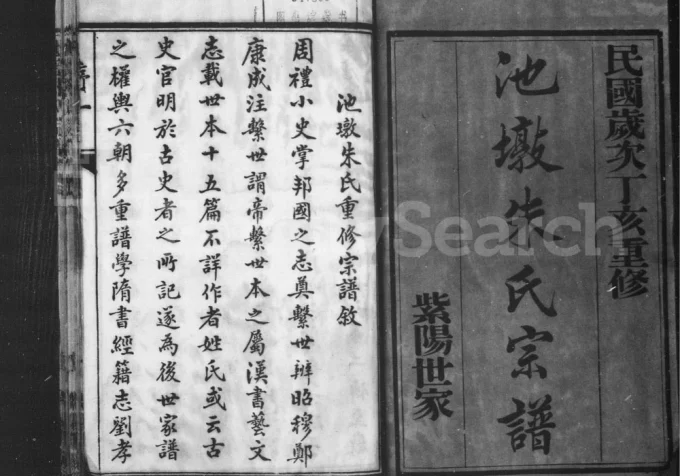 民國歲次丁亥重修
池墩朱氏宗譜
紫陽世家
池墩朱氏重修宗譜敘
周禮小史掌邦國之志奠繫世辨昭穆鄭
康成注繫世謂帝繫世本之屬漢書藝文
志載世本十五篇不詳作者姓氏或云古
史官明於古史者之所記遂為後世家譜
之權輿六朝多重譜學隋書經籍志劉孝
序一